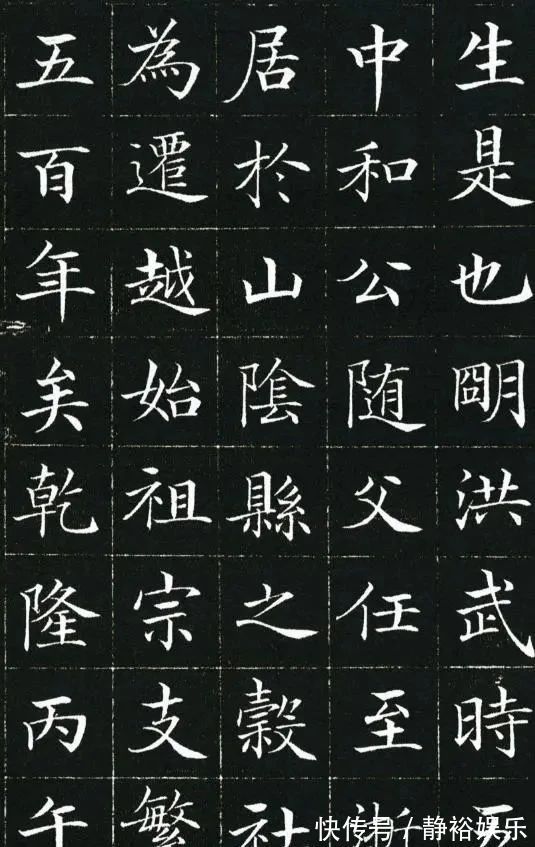 生是也明洪武時
中和公随父任至
居於山陰縣之穀社
為遷越始祖宗支繁
五百年矣乾隆丙午
快传号/静裕娱乐